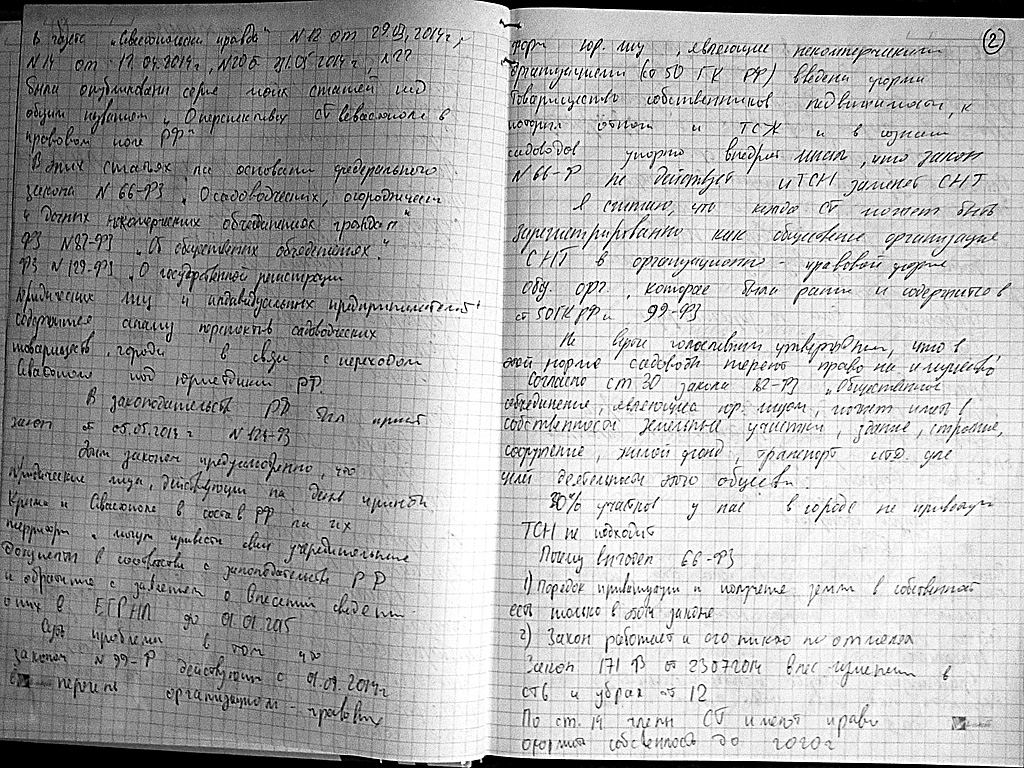 В газете „Севастопольская правда" N 12 от 29.03.2014 г,
N 14 от 12.04.2014 г, N 20 от 31.05 2014 г, N ??
была опубликована серия моих статей под
общим названием „О перспективах СТ Севастополя в
правовом поле РФ"
В этих статьях, на основании федерального
закона N 66-ФЗ „О садоводческих, огороднических
и дачных некоммерческих объединениях граждан"
ФЗ N 82-ФЗ „Об общественных объединениях".
ФЗ N 129-ФЗ „О государственной регистрации
юридических лиц и индивидуальных предпринимателей"
содержится анализ перспектив садоводческих
товариществ города в связи с переходом
Севастополя под юрисдикцию РФ.
В законодательстве РФ был принят
закон от 05.05.2014 г N 124-ФЗ
Этим законом предусмотрено, что
юридические лица, действующие на день принятия
Крыма и Севастополя в состав РФ на их
территории могут привести свои учредительные
документы в соответствие с законодательством РФ
и обратиться с заявлением о внесении сведений
о них в ЕГРЮЛ до 01.01.2015
Суть проблемы в том что
законом N 99-Ф действующим с 01.09.2014 г
в перечень организационно-правовых
(2)
форм юр. лиц, являющихся некоммерческими
организациями (ст 50 ГК РФ) введена форма
Товарищество собственников недвижимости, к
которым отнесли и ТСЖ и в сознание
садоводов упорно внедряют мысль, что закон
N 66-Ф не действует и ТСН заменяет СНТ
Я считаю, что каждое СТ может быть
зарегистрировано как общественная организация
СНТ в организационно-правовой форме
общ. орг., которая была ранее и содержится в
ст 50 ГК РФ и 99-ФЗ
Не верьте голословным утверждениям, что в
этой форме садоводы теряют право на имущество
Согласно ст. 30 закона 82-ФЗ „Общественное
объединение, являющееся юр. лицом, может иметь в
собственности земельные участки, здания, строения,
сооружения, жилой фонд, транспорт и т.д. для
целей деятельности этого общества.
80% участков у нас в городе не приватизир
ТСН не подходит
Почему выгоден 66-ФЗ
1) Порядок приватизации и получения земли в собственность
есть только в этом законе
2) Закон работает и его никто не отменял
Закон 171 Ф от 23.07.2014 внес изменения в
ст 6 и убрал ст 12
По ст. 14 члены СТ имеют право
оформить собственность до 2020 г